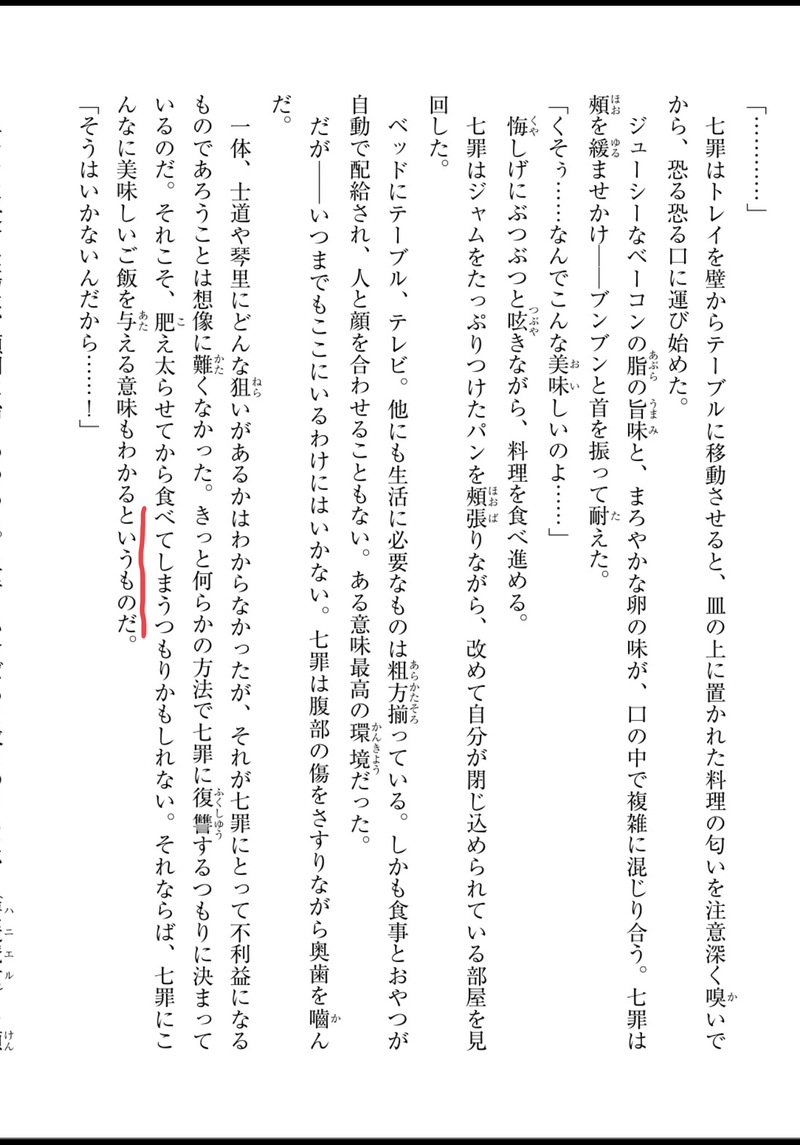 「…………」
七罪はトレイを壁からテーブルに移動させると、皿の上に置かれた料理の匂いを注意深く嗅いで
から、恐る恐る口に運び始めた。
ジューシーなベーコンの脂の旨味と、まろやかな卵の味が、口の中で複雑に混じり合う。七罪は
頰を緩ませかけ──ブンブンと首を振って耐えた。
「くそぅ……なんでこんな美味しいのよ……」
悔しげにぶつぶつと呟きながら、料理を食べ進める。
七罪はジャムをたっぷりつけたパンを頰張りながら、改めて自分が閉じ込められている部屋を見
回した。
ベッドにテーブル、テレビ。他にも生活に必要なものは粗方揃っている。しかも食事とおやつが
自動で配給され、人と顔を合わせることもない。ある意味最高の環境だった。
だが──いつまでもここにいるわけにはいかない。七罪は腹部の傷をさすりながら奥歯を嚙ん
だ。
一体、士道や琴里にどんな狙いがあるかはわからなかったが、それが七罪にとって不利益になる
ものであろうことは想像に難くなかった。きっと何らかの方法で七罪に復讐するつもりに決まって
いるのだ。それこそ、肥え太らせてから食べてしまうつもりかもしれない。それならば、七罪にこ
んなに美味しいご飯を与える意味もわかるというものだ。
「そうはいかないんだから……！」